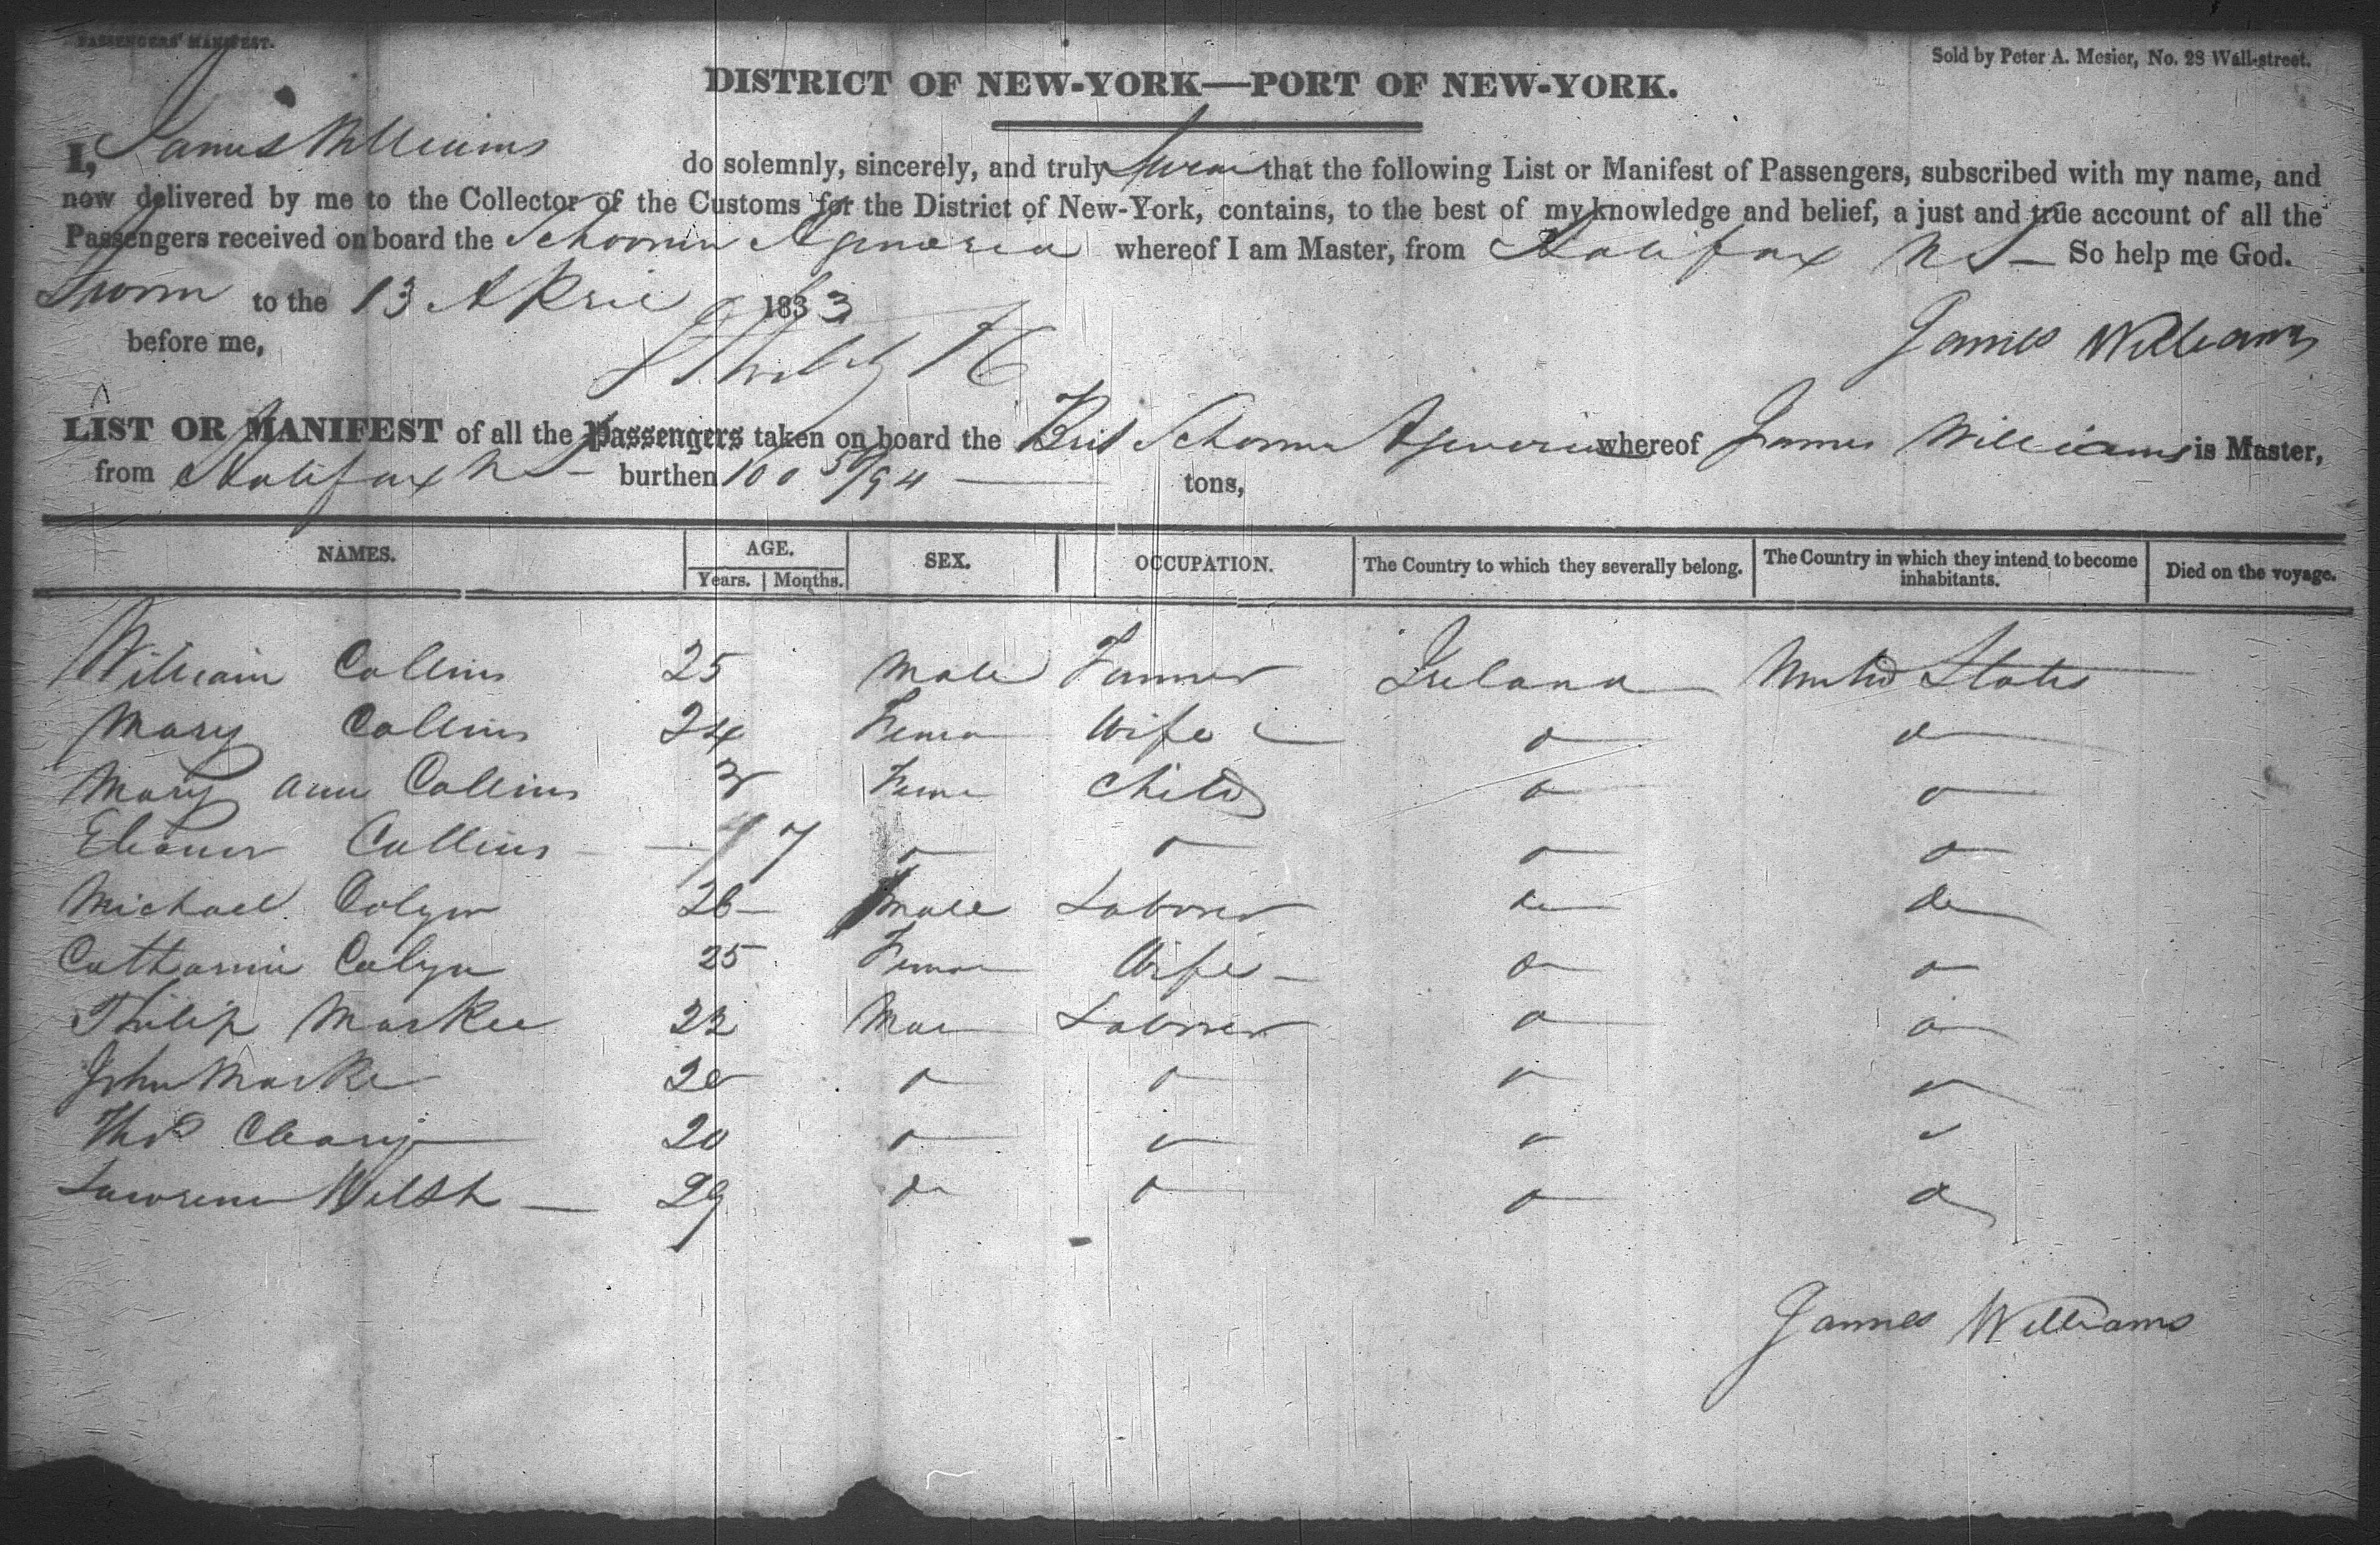 PASSENGERS' MANIFEST.
Sold by Peter A. Mesier, No. 28 Wall-street.
DISTRICT OF NEW-YORK—PORT OF NEW-YORK.
I, James Williams do solemnly, sincerely, and truly swear that the following List or Manifest of Passengers, subscribed with my name, and
now delivered by me to the Collector of the Customs for the District of New-York, contains, to the best of my knowledge and belief, a just and true account of all the
Passengers received on board the Schooner whereof I am Master, from Halifax N S — So help me God.
Sworn to the 13 April 1833
before me,
James Williams
LIST OR MANIFEST of all the Passengers taken on board the Brit Schooner whereof James Williams is Master,
from Halifax N S — burthen 100 tons,
NAMES. AGE. SEX. OCCUPATION. The Country to which they severally belong. The Country in which they intend to become inhabitants. Died on the voyage.
Years. Months.
William Collins 25 Male Farmer Ireland United States
Mary Collins 24 Fema Wife do do
Mary Ann Collins 3 Fema Child do do
Eleanor Collins 7 do do do do
Michael 26 Male Laborer do do
Catharine 25 Fema Wife do do
Philip Markee 22 Mae Laborer do do
John Marke 20 do do do do
Thos Cleary 20 do do do do
Lawrence Welsh 29 do do do do
James Williams